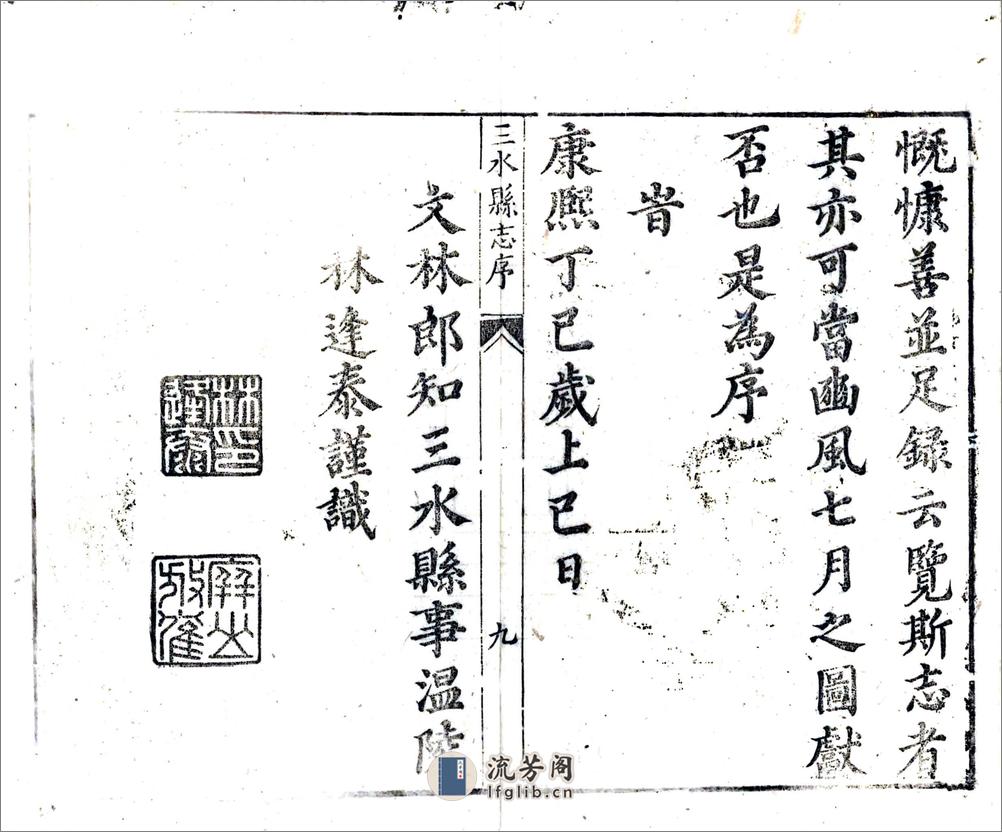 慨慷善並足錄云覽斯志者
其亦可當豳風七月之圖獻
否也是為序
旹
康熙丁巳歲上巳日
三水縣志序
九
文林郎知三水縣事温陵
林逢泰謹識
流芳阁
lfglib.cn